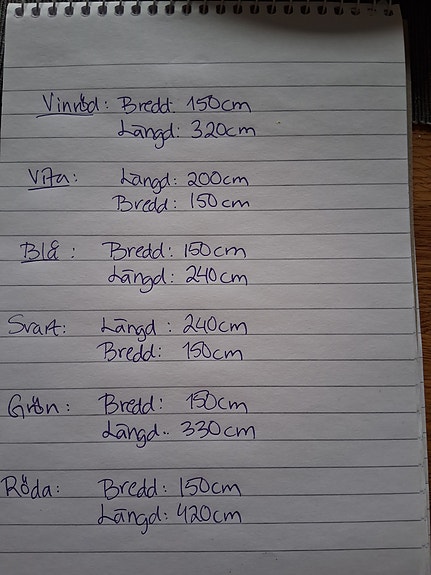 Vinröd: Bredd: 150cm
Längd: 320cm
Vita: Längd: 200cm
Bredd: 150cm
Blå: Bredd: 150cm
Längd: 240cm
Svart: Längd: 240cm
Bredd: 150cm
Grön: Bredd: 150cm
Längd: 330cm
Röda: Bredd: 150cm
Längd: 420cm